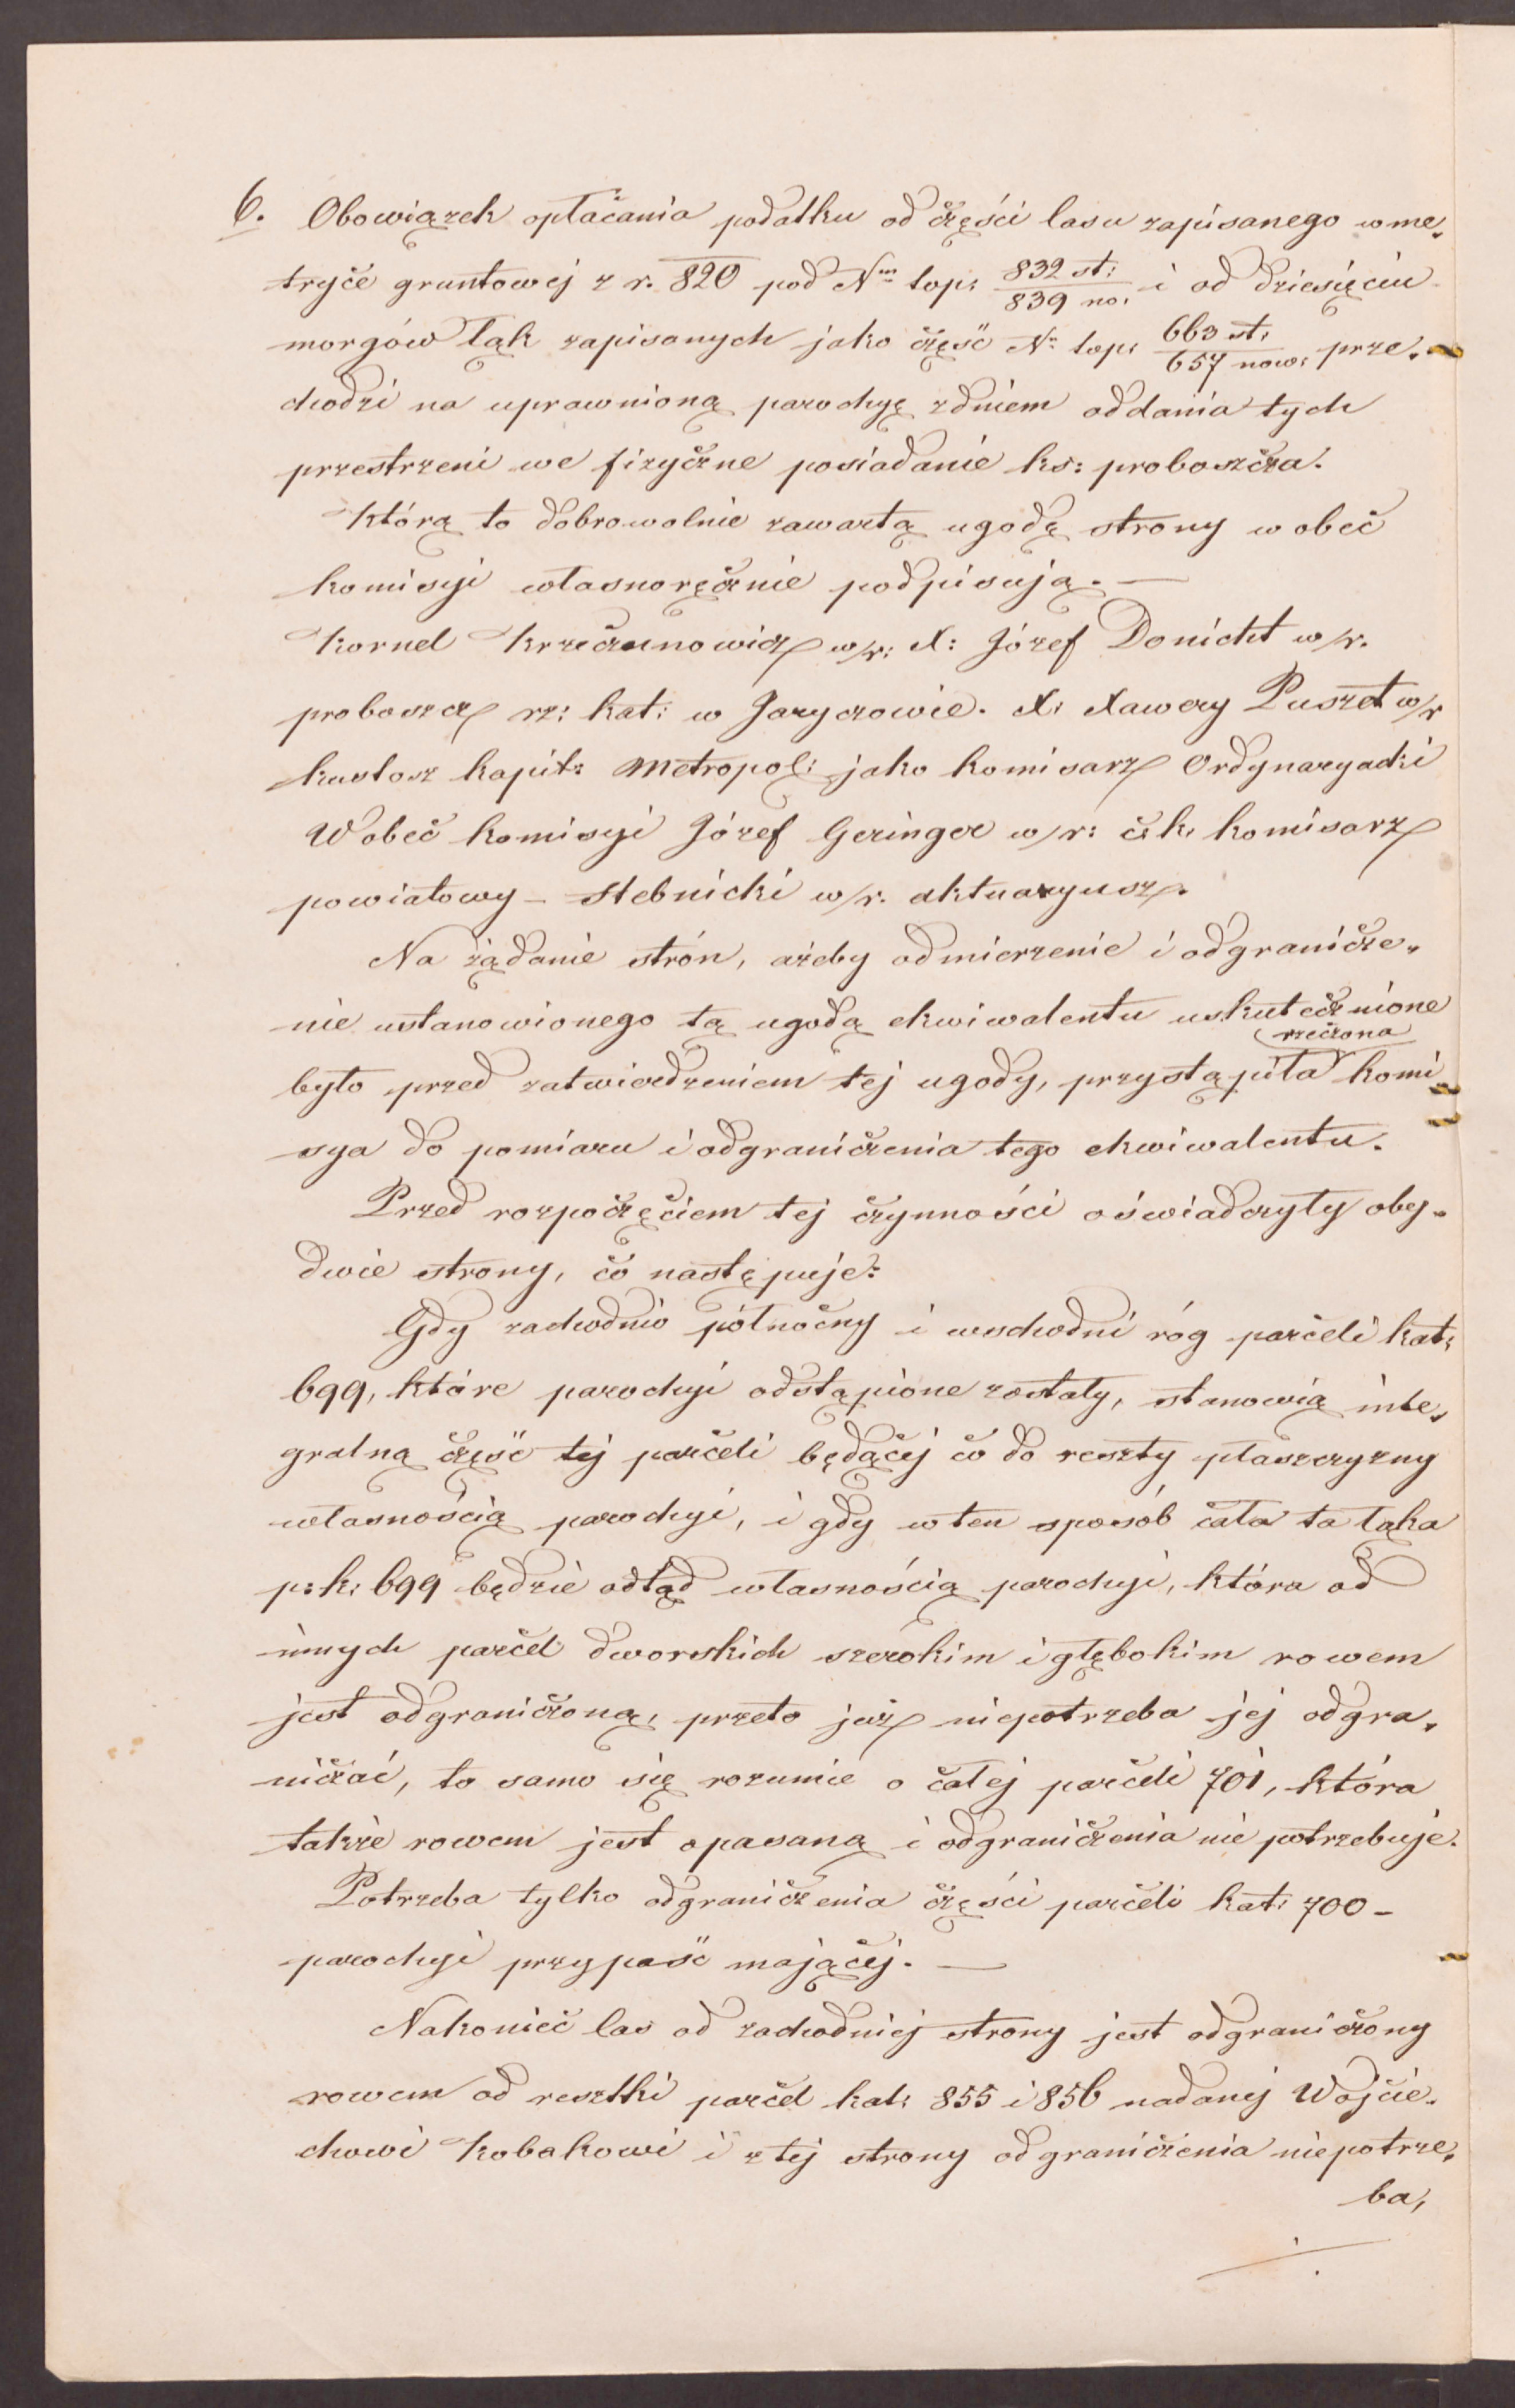 6. Obowiązek opłacania podatku od części lasu zapisanego w me„
tryce gruntowej z r. 820 pod Nm top: 832 st:/839 no: i od dziesięciu
morgów łąk zapisanych jako część No top: 663 st:/657 now: prze„
chodzi na uprawnioną parochyę z dniem oddania tych
przestrzeni we fizyczne posiadanie ks: proboszcza.
Którą to dobrowolnie zawartą ugodę strony wobec
komisyi własnoręcznie podpisują. —
Kornel Krzeczunowicz w/r: X: Józef Donicht w/r.
proboszcz rz: kat: w Jaryczowie. X: Xawery Puszet w/r
kustosz kapit: Metropol: jako komisarz Ordynaryacki
Wobec komisyi Józef Geringer w/r: c: k: komisarz
powiatowy – Stebnicki w/r. aktuaryusz.
Na żądanie strón, ażeby odmierzenie i odgranicze„
nie ustanowionego tą ugodą ekwiwalentu uskutecznione
rzeczona
było przed zatwierdzeniem tej ugody, przystąpiła komi„
sya do pomiaru i odgraniczenia tego ekwiwalentu.
Przed rozpoczęciem tej czynności oświadczyły oby„
dwie strony, co następuje:
Gdy zachodnio północny i wschodni róg parceli kat:
699, które parochyi odstąpione zostały, stanowią inte„
gralną część tej parceli będącej co do reszty płaszczyzny
własnością parochyi, i gdy w ten sposób cała ta łąka
p: k: 699 będzie odtąd własnością parochyi, która od
innych parcel dworskich szerokim i głębokim rowem
jest odgraniczoną, przeto już niepotrzeba jej odgra„
niczać, to samo się rozumie o całej parceli 701, która
także rowem jest opasaną i odgraniczenia nie potrzebuje.
Potrzeba tylko odgraniczenia części parceli kat: 700 –
parochyi przypaść mającej. —
Nakoniec las od zachodniej strony jest odgraniczony
rowem od resztki parcel kat: 855 i 856 nadanej Wojcie„
chowi Kobakowi i z tej strony odgraniczenia niepotrze„
ba,